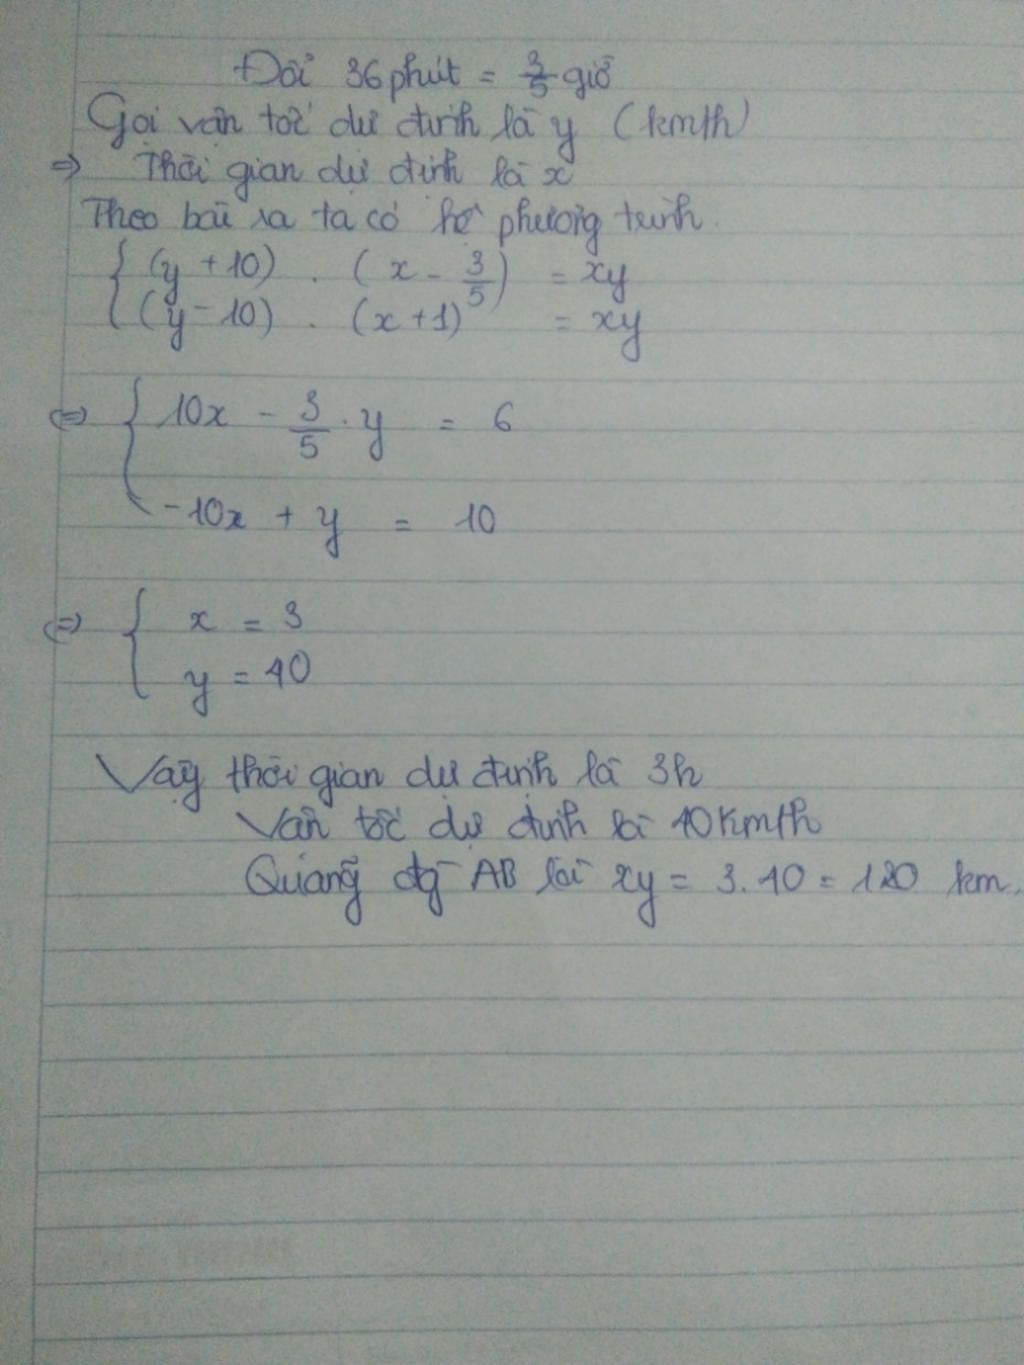 Đổi 36 phút = 3/5 giờ
Gọi vận tốc dự định là y (km/h)
=> Thời gian dự định là x
Theo bài ra ta có hệ phương trình.
{ (y + 10) . (x - 3/5) = xy
(y - 10) . (x + 1) = xy
<=> { 10x - 3/5 . y = 6
-10x + y = 10
<=> { x = 3
y = 40
Vậy thời gian dự định là 3h
Vận tốc dự định là 40 km/h
Quãng đg AB là xy = 3.40 = 120 km.